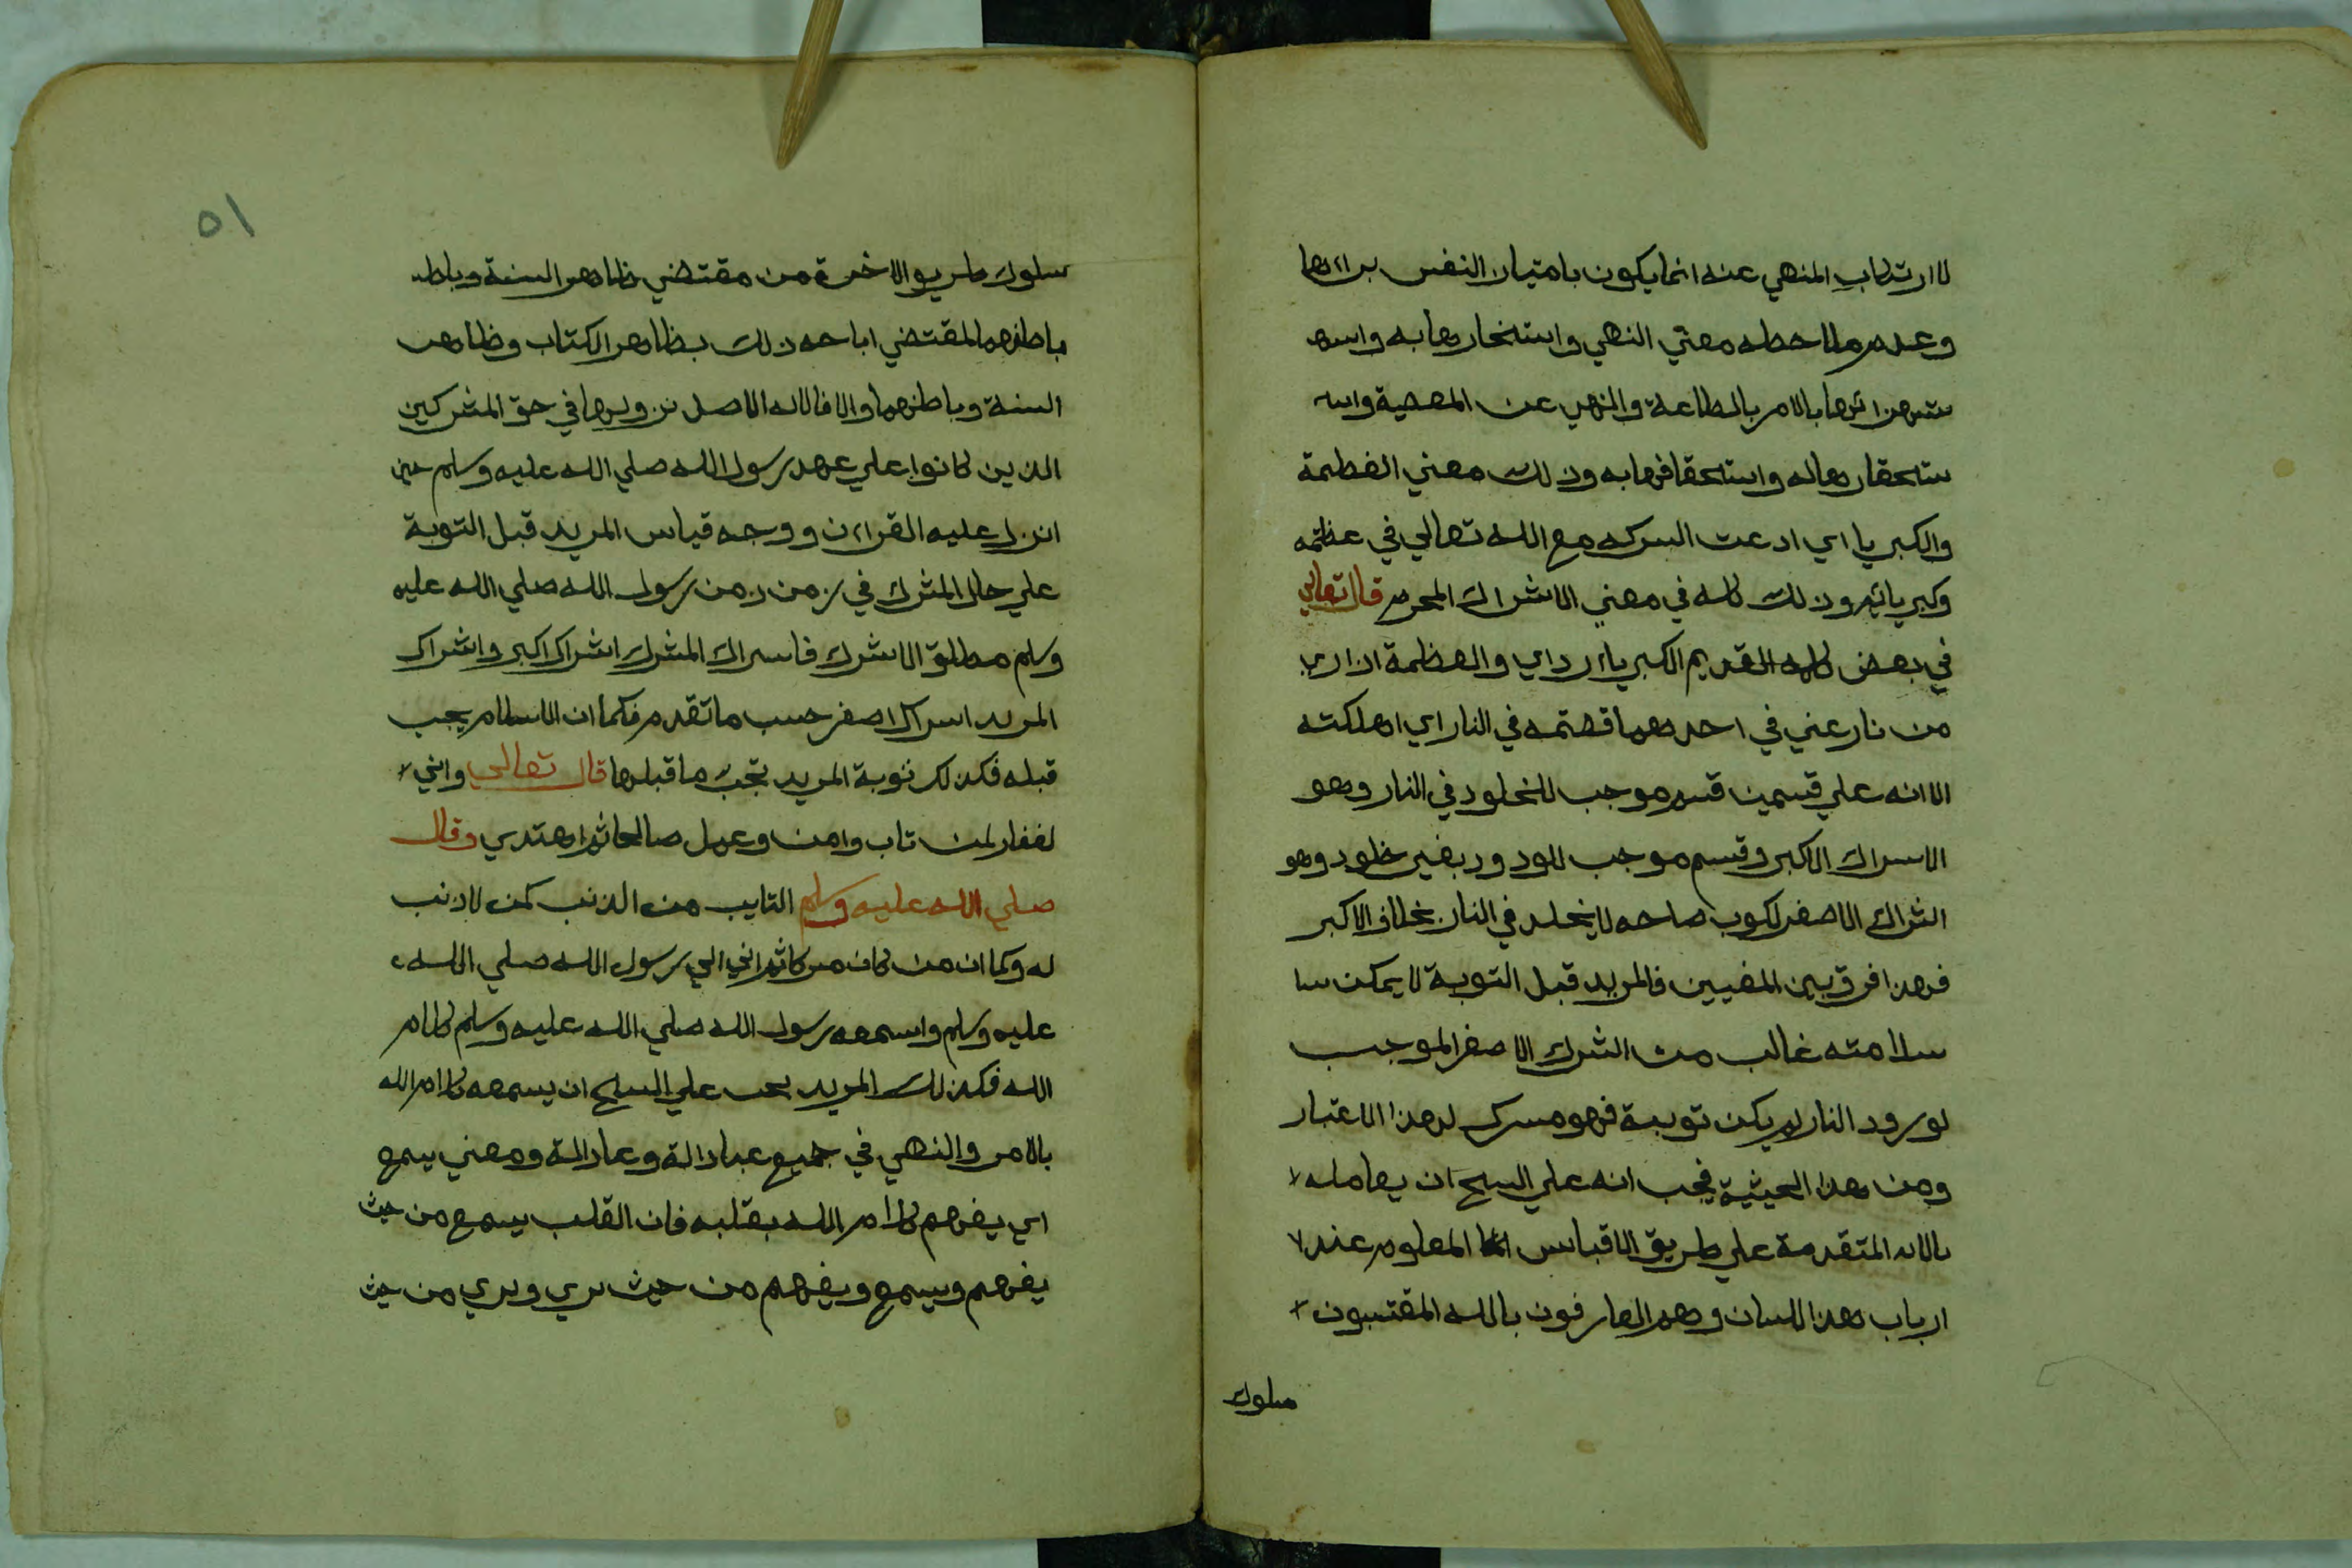 لا ارتكاب المنهي عنه انما يكون بامتيار النفس براءها
وعدم ملاحطه معني النهي واستنحارها به واسه
ستهزائها بالامر بالطاعة والنهي عن المعصية واسه
ستحقارها له واستحقافها به وذلك معني العظيمة
والكبريا اي ادعت السركه مع الله تعالي في عظمته
وكبريائه وذلك كله في معني الاشراك المحرم قال تعالي
في بعض كلامه القديم الكبرياء رداي والعظمة ازاري
من نازعني في احدهما قصمته في النار اي اهلكته
الا انه علي قسمين قسم موجب للخلود في النار وهو
الاسراك الاكبر وقسم موجب للورود بغير خلود وهو
الشراك الاصغر لكون صاحه لا يخلد في النار بخلاف الاكبر
فهذا فرق بين المعنيين فالمريد قبل التوبة لا يمكن سا
سلامته غالب من الشرك الاصغر الموجب
لورود النار لم يكن توبة فهو مسرك لهذا الاعتبار
ومن هذا الحيثية فيجب انه علي السيح ان يعامله
بالايه المتقدمة علي طريق الاقباس المعلوم عند
ارباب هذا اللسان وهم العارفون بالله المقتبسون
سلوك
٥١
سلوك طريق الاخرة من مقتضي ظاهر السنة وباطـ
باطنهما المقتضي اباحه ذلك بظاهر الكتاب وظاهر
السنة وباطنهما والا فالايه الاصل نزولها في حق المشركين
الذين كانوا علي عهد رسول الله صلي الله عليه وسلم حين
انزل عليه القراءن ووجه قياس المريد قبل التوبة
علي حال المشرك في زمن زمن رسول الله صلي الله عليه
وسلم مطلق الاشرك فاسراك المشرك اشراك اكبر واشراك
المريد اسراك اصغر حسب ما تقدم فكما ان الاسلام يجب
قبله فكذلك توبة المريد تجب ما قبلها قال تعالي واني
لغفار لمن تاب وامن وعمل صالحا ثم اهتدي وقال
صلي الله عليه وسلم التايب من الذنب كمن لا ذنب
له وكما ان من كان مسركا ثم اتي الي رسول الله صلي الله
عليه وسلم واسمعه رسول الله صلي الله عليه وسلم كلام
الله فكذلك المريد يحب علي السيح ان يسمعه كلام الله
بالامر والنهي في جميع عبادالة وعادالة ومعني يسمع
اي يفهم كلام الله بقلبه فان القلب يسمع من حيث
يفهم ويسمع ويفهم من حيث يري ويري من حيث